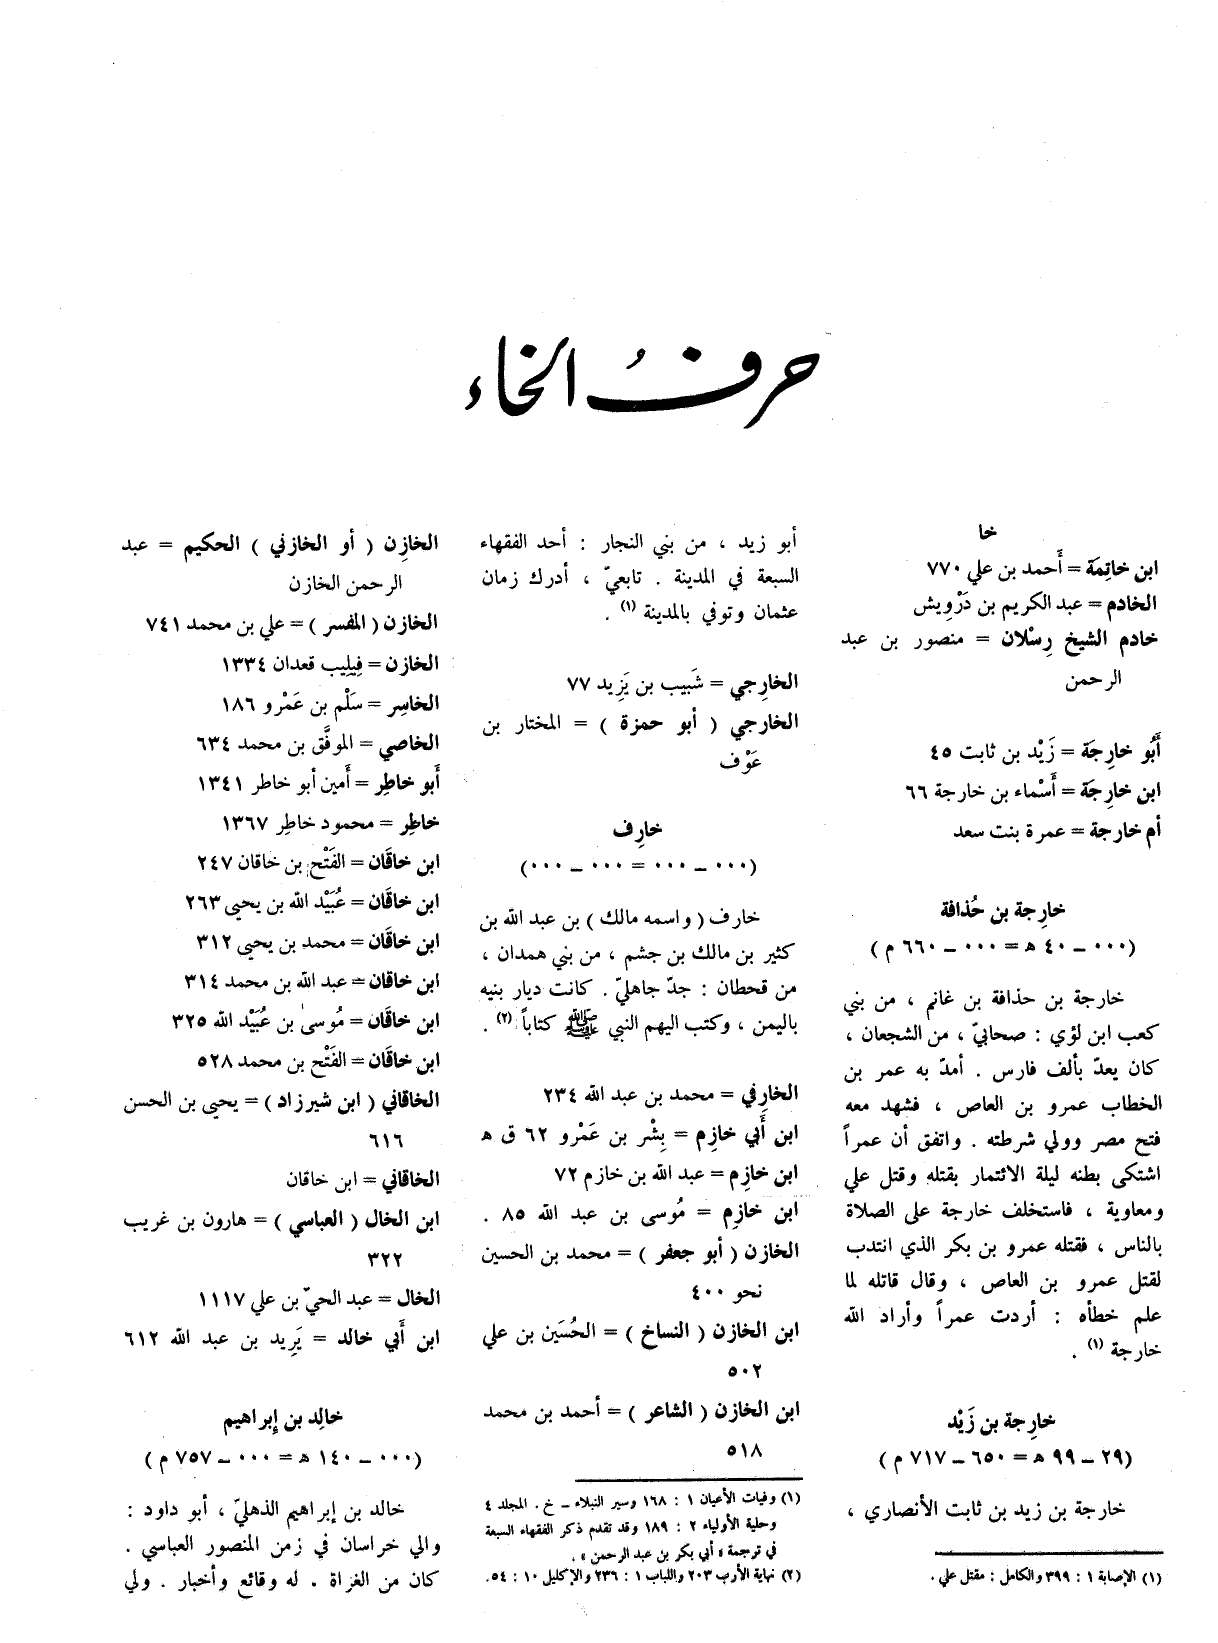 حرفُ الخاء
خا
ابن خاتِمَة = أَحمد بن علي ٧٧٠
الخادم = عبد الكريم بن دَرْوِيش
خادم الشيخ رِسْلان = منصور بن عبد
الرحمن
أَبُو خارِجَة = زَيْد بن ثابت ٤٥
ابن خارِجَة = أَسْماء بن خارجة ٦٦
أم خارجة = عمرة بنت سعد
خارِجة بن حُذافة
(٠٠٠ – ٤٠ هـ = ٠٠٠ – ٦٦٠ م)
خارجة بن حذافة بن غانم ، من بني
كعب ابن لؤي : صحابيّ ، من الشجعان ،
كان يعدّ بألف فارس . أمدّ به عمر بن
الخطاب عمرو بن العاص ، فشهد معه
فتح مصر وولي شرطته . واتفق أن عمراً
اشتكى بطنه ليلة الائتمار بقتله وقتل علي
ومعاوية ، فاستخلف خارجة على الصلاة
بالناس ، فقتله عمرو بن بكر الذي انتدب
لقتل عمرو بن العاص ، وقال قاتله لما
علم خطأه : أردت عمراً وأراد الله
خارجة (١) .
خارِجة بن زَيْد
(٢٩ – ٩٩ هـ = ٦٥٠ – ٧١٧ م)
خارجة بن زيد بن ثابت الأنصاري ،
(١) الإصابة ١ : ٣٩٩ والكامل : مقتل علي .
أبو زيد ، من بني النجار : أحد الفقهاء
السبعة في المدينة . تابعيّ ، أدرك زمان
عثمان وتوفي بالمدينة (١) .
الخارِجي = شَبيب بن يَزِيد ٧٧
الخارجي ( أبو حمزة ) = المختار بن
عَوْف
خارِف
(٠٠٠ – ٠٠٠ = ٠٠٠ – ٠٠٠)
خارف ( واسمه مالك ) بن عبد الله بن
كثير بن مالك بن جشم ، من بني همدان ،
من قحطان : جدّ جاهليّ . كانت ديار بنيه
باليمن ، وكتب اليهم النبي ﷺ كتاباً (٢) .
الخارِفي = محمد بن عبد الله ٢٣٤
ابن أَبي خازِم = بِشْر بن عَمْرو ٦٢ ق هـ
ابن خازِم = عبد الله بن خازم ٧٢
ابن خازِم = مُوسى بن عبد الله ٨٥ .
الخازن ( أبو جعفر ) = محمد بن الحسين
نحو ٤٠٠
ابن الخازن ( النساخ ) = الحُسَين بن علي
٥٠٢
ابن الخازن ( الشاعر ) = أحمد بن محمد
٥١٨
(١) وفيات الأعيان ١ : ١٦٨ وسير النبلاء – خ . المجلد ٤
وحلية الأولياء ٢ : ١٨٩ وقد تقدم ذكر الفقهاء السبعة
في ترجمة « أبي بكر بن عبد الرحمن » .
(٢) نهاية الأرب ٢٠٣ واللباب ١ : ٢٣٦ والإكليل ١٠ : ٥٤.
الخازِن ( أو الخازني ) الحكيم = عبد
الرحمن الخازن
الخازن ( المفسر ) = علي بن محمد ٧٤١
الخازن = فِيلِيب قعدان ١٣٣٤
الخاسِر = سَلْم بن عَمْرو ١٨٦
الخاصي = الموفَّق بن محمد ٦٣٤
أَبو خاطِر = أَمين أبو خاطر ١٣٤١
خاطِر = محمود خاطِر ١٣٦٧
ابن خاقان = الفَتْح بن خاقان ٢٤٧
ابن خاقَان = عُبَيْد الله بن يحيى ٢٦٣
ابن خاقَان = محمد بن يحيى ٣١٢
ابن خاقان = عبد الله بن محمد ٣١٤
ابن خاقَان = مُوسىٰ بن عُبَيْد الله ٣٢٥
ابن خاقَان = الفَتْح بن محمد ٥٢٨
الخاقاني ( ابن شيرزاد ) = يحيى بن الحسن
٦١٦
الخاقاني = ابن خاقان
ابن الخال ( العباسي ) = هارون بن غريب
٣٢٢
الخال = عبد الحيّ بن علي ١١١٧
ابن أَبي خالد = يَزِيد بن عبد الله ٦١٢
خالِد بن إِبراهيم
(٠٠٠ – ١٤٠ هـ = ٠٠٠ – ٧٥٧ م)
خالد بن إبراهيم الذهليّ ، أبو داود :
والي خراسان في زمن المنصور العباسي .
كان من الغزاة . له وقائع وأخبار . ولي